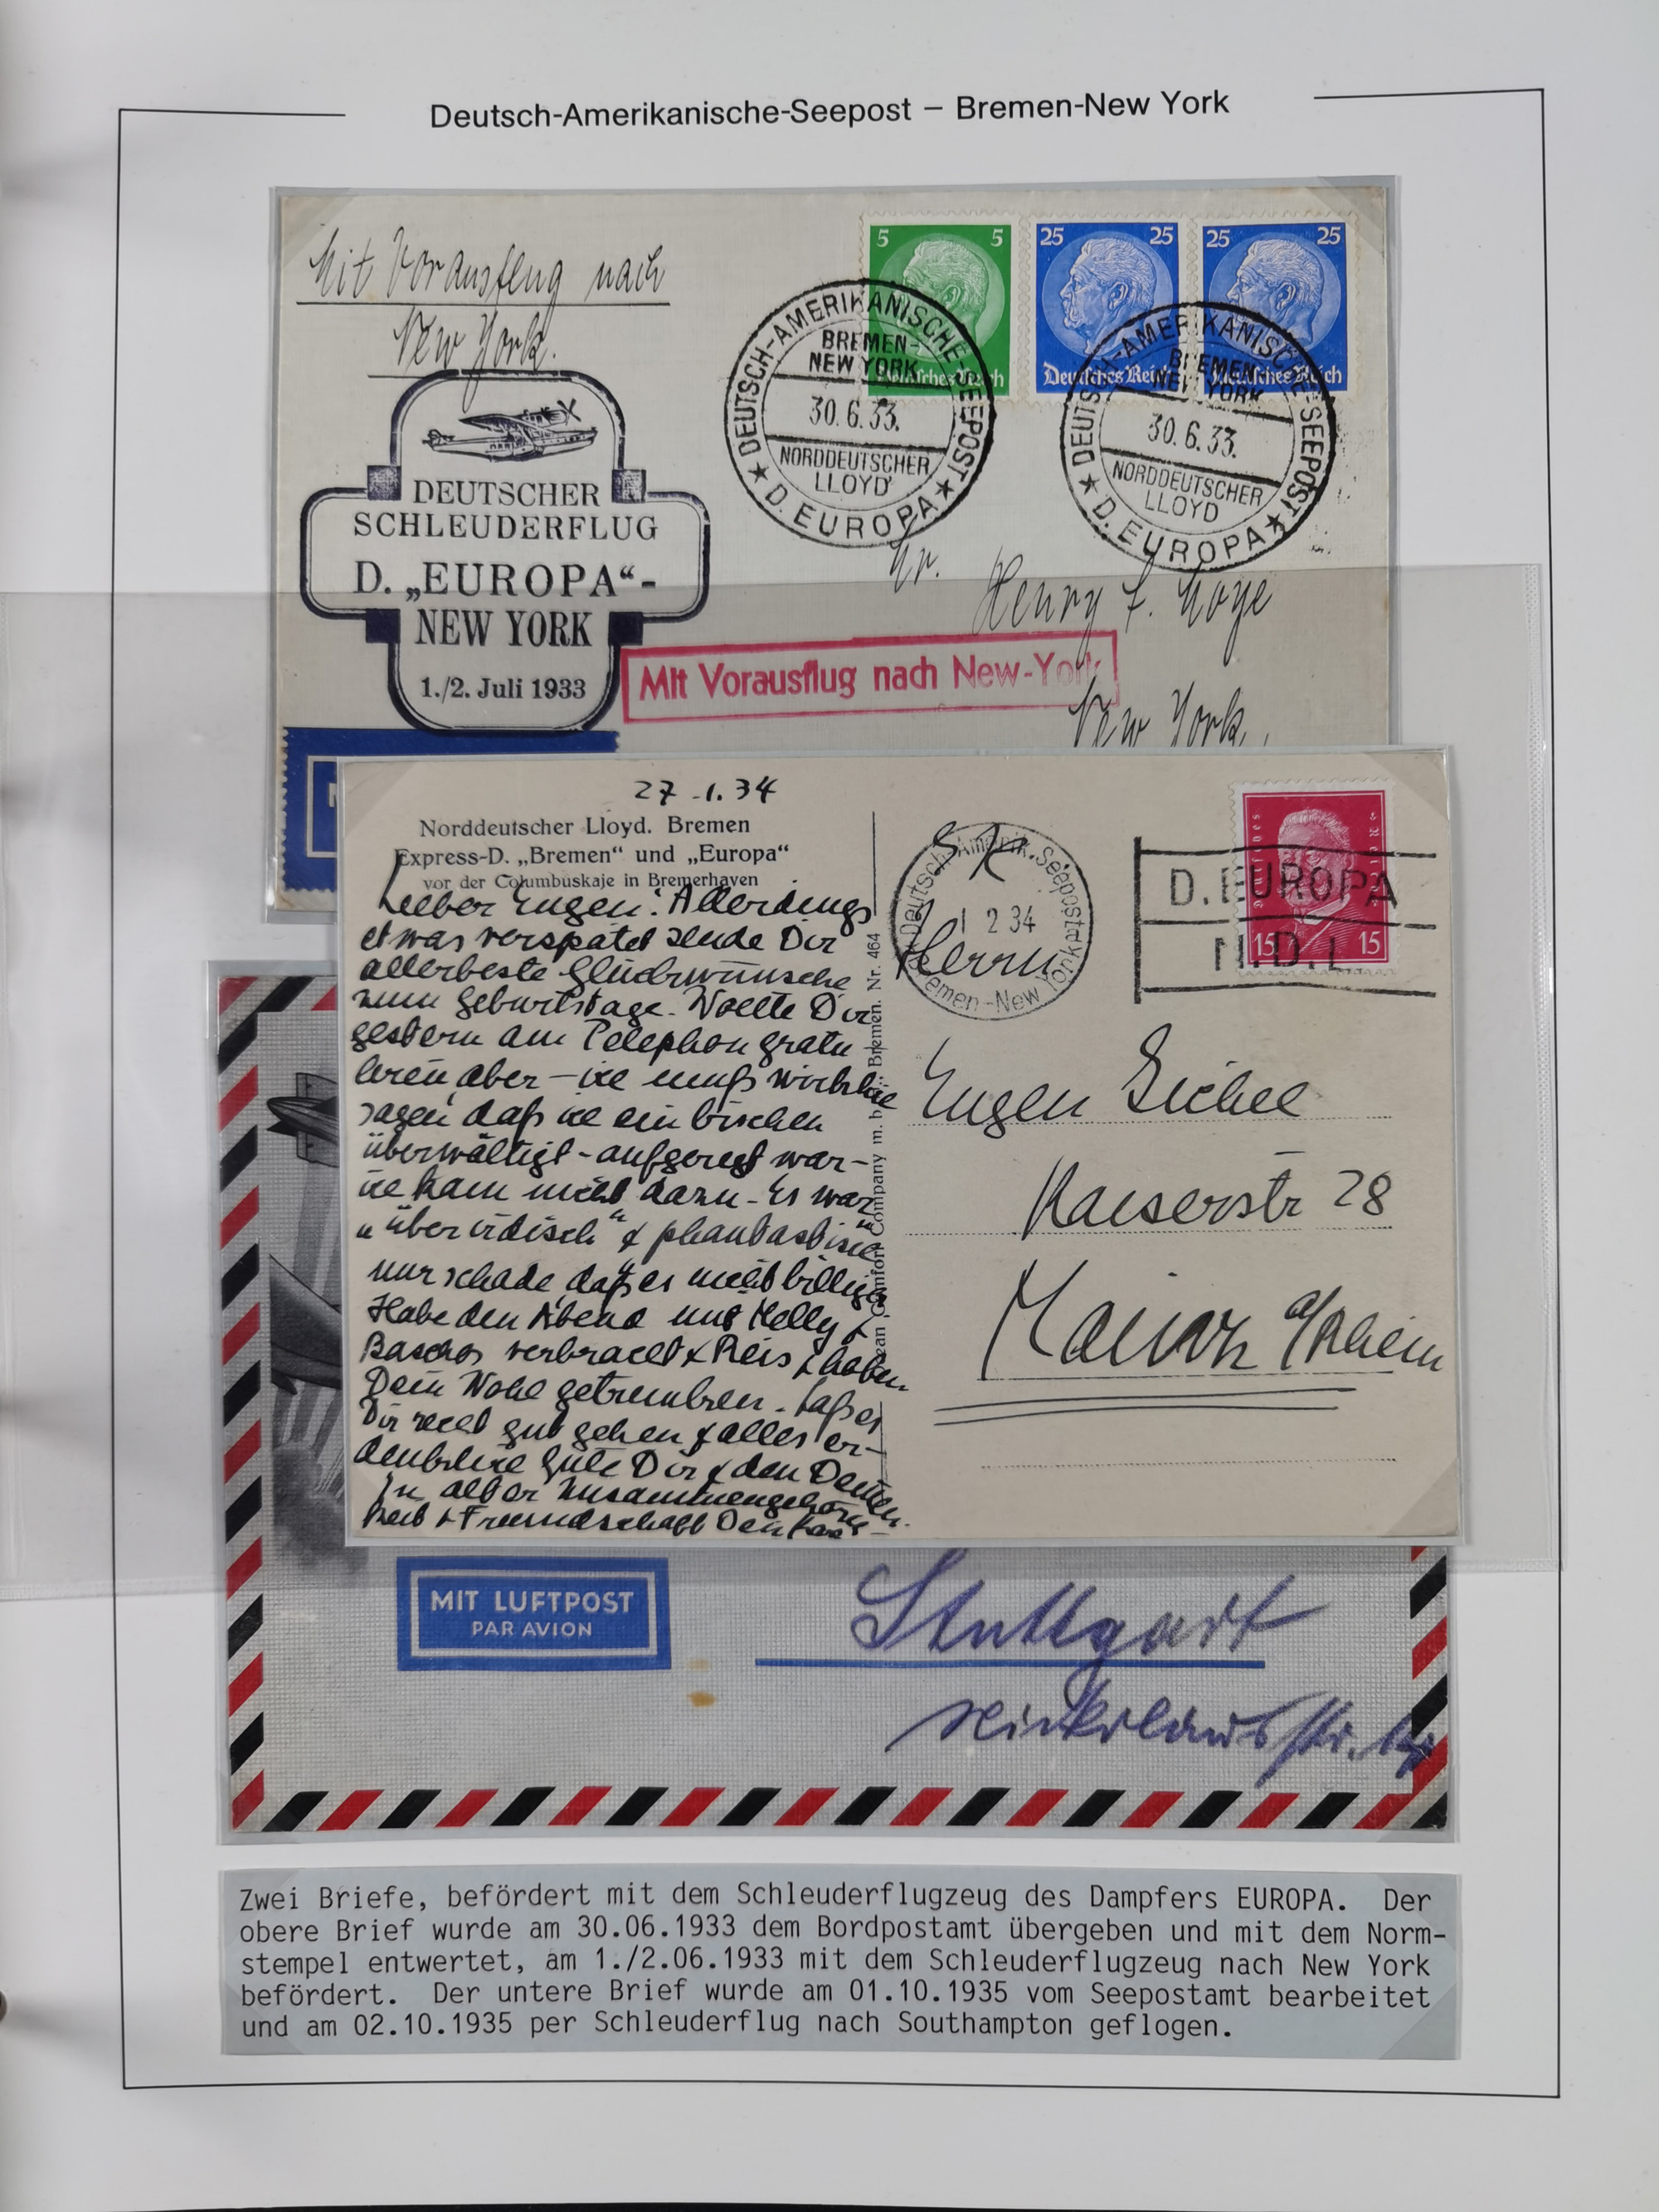 Deutsch-Amerikanische-Seepost – Bremen-New York
Mit Vorausflug nach
New York.
5 5
25 25
25 25
Deutsches Reich
Deutsches Reich
Deutsches Reich
DEUTSCH-AMERIKANISCHE SEEPOST
BREMEN-
NEW YORK
30.6.33.
NORDDEUTSCHER
LLOYD
★ D. EUROPA ★
DEUTSCH-AMERIKANISCHE SEEPOST
BREMEN-
NEW YORK
30.6.33.
NORDDEUTSCHER
LLOYD
★ D. EUROPA ★
DEUTSCHER
SCHLEUDERFLUG
D. „EUROPA“-
NEW YORK
1./2. Juli 1933
Mit Vorausflug nach New-York
Henry F.
New York.
27.1.34
Norddeutscher Lloyd. Bremen
Express-D. „Bremen“ und „Europa“
vor der Columbuskaje in Bremerhaven
Lieber Eugen! Allerdings
etwas verspätet sende Dir
allerbeste Glückwünsche
zum Geburtstage. Wollte Dir
gestern am Telephon gratu
lieren, aber – ich muß wirklich
sagen, daß ich ein bischen
überwältigt – aufgeregt war –
ich kam nicht dazu – Es war
„überirdisch“ & phantastisch
nur schade, daß es nicht billiger
Habe den Abend mit Nelly &
verbracht & Reis & haben
Dein Wohl getrunken. Laß es
Dir recht gut gehen & alles er-
denkliche Gute Dir & den Deinen.
In alter Zusammengehörig-
keit & Freundschaft Dein
Company m. b. Bremen. Nr. 464
Deutsch-Amerik. Seepost
1 2 34
Bremen-New York
D. EUROPA
N.D.L.
15 15
Herrn
Eugen
Kaiserstr 28
Mainz a/Rhein
MIT LUFTPOST
PAR AVION
Stuttgart
Zwei Briefe, befördert mit dem Schleuderflugzeug des Dampfers EUROPA. Der
obere Brief wurde am 30.06.1933 dem Bordpostamt übergeben und mit dem Norm-
stempel entwertet, am 1./2.06.1933 mit dem Schleuderflugzeug nach New York
befördert. Der untere Brief wurde am 01.10.1935 vom Seepostamt bearbeitet
und am 02.10.1935 per Schleuderflug nach Southampton geflogen.